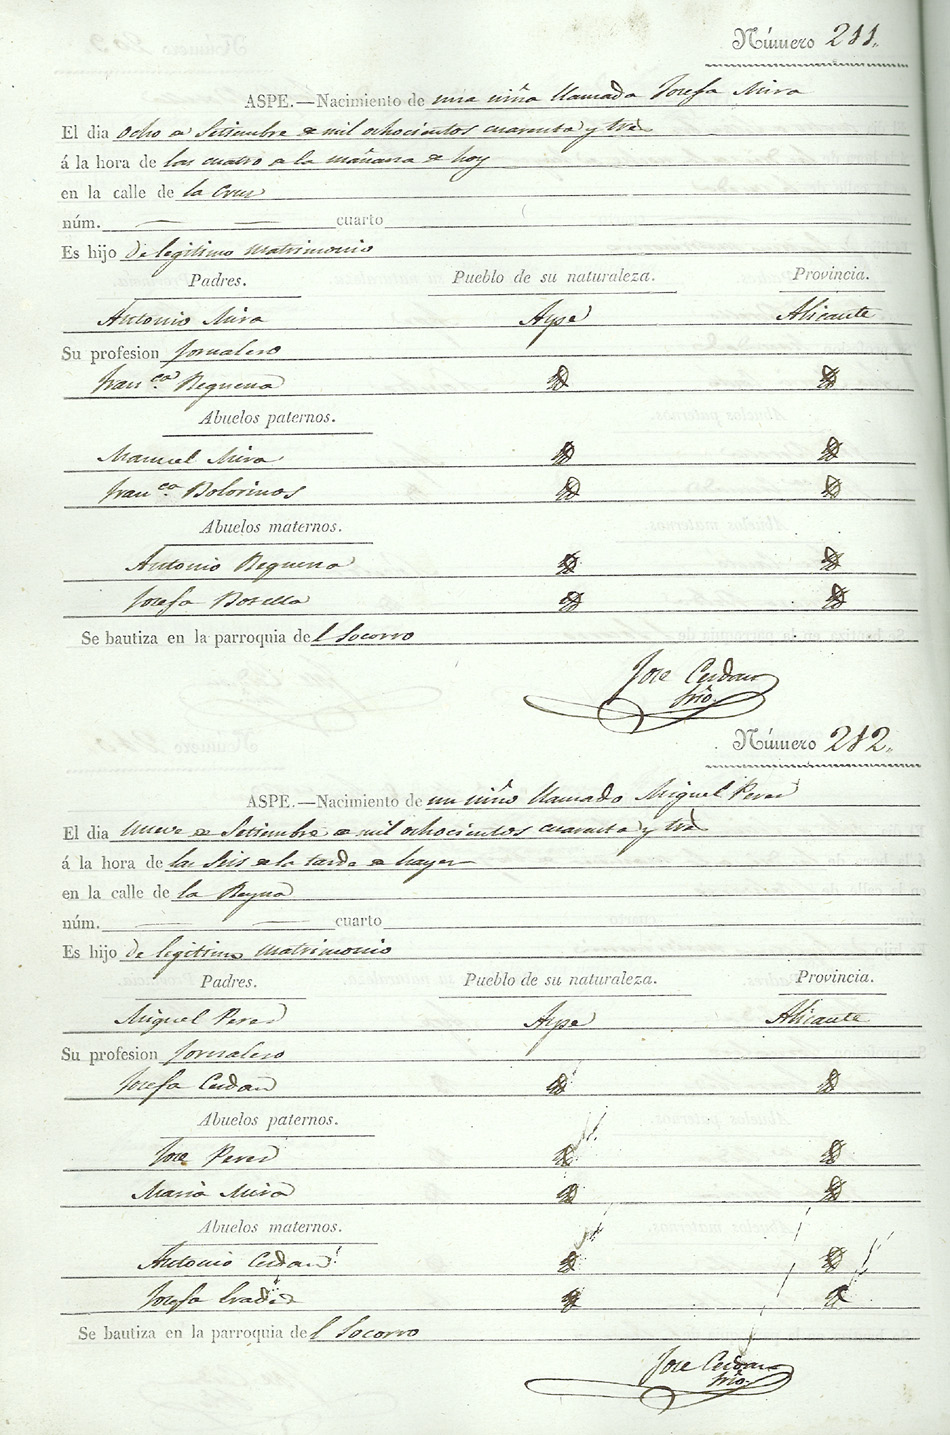 Número 211.
ASPE.—Nacimiento de una niña llamada Josefa Mira
El dia ocho de Setiembre de mil ochocientos cuarenta y tres
á la hora de las cuatro de la mañana de hoy
en la calle de la Cruz
núm. — — cuarto
Es hijo de legitimo matrimonio
Padres. Pueblo de su naturaleza. Provincia.
Antonio Mira Aspe Alicante
Su profesion Jornalero
Fran.ca Requena
Abuelos paternos.
Manuel Mira
Fran.ca Bolorinos
Abuelos maternos.
Antonio Requena
Josefa Botella
Se bautiza en la parroquia del Socorro
Jose Cerdan
Srio.
Número 212.
ASPE.—Nacimiento de un niño llamado Miguel Perez
El dia nueve de Setiembre de mil ochocientos cuarenta y tres
á la hora de las seis de la tarde de hayer
en la calle de la Reyna
núm. — — cuarto
Es hijo de legitimo matrimonio
Padres. Pueblo de su naturaleza. Provincia.
Miguel Perez Aspe Alicante
Su profesion Jornalero
Josefa Cerdan
Abuelos paternos.
Jose Perez
Maria Mira
Abuelos maternos.
Antonio Cerdan
Josefa
Se bautiza en la parroquia del Socorro
Jose Cerdan
Srio.